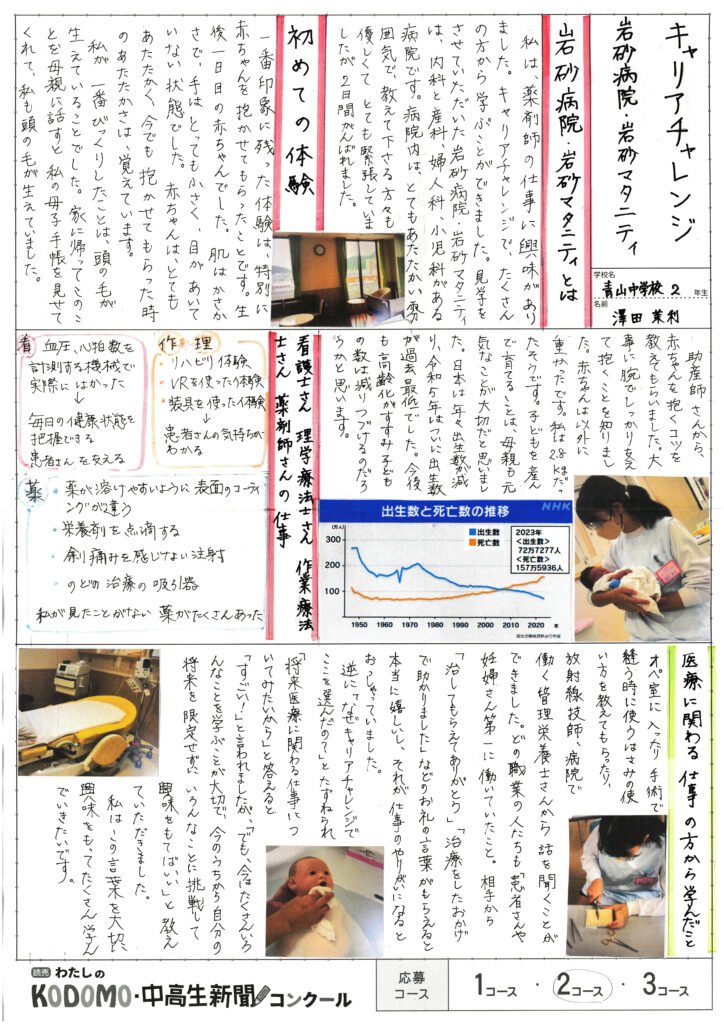 キャリアチャレンジ
岩砂病院・岩砂マタニティ
学校名
青山中学校 2年生
名前
澤田 茉利
岩砂病院・岩砂マタニティとは
私は、薬剤師の仕事に興味があり
ました。キャリアチャレンジで、たくさん
の方から学ぶことができました。見学を
させていただいた岩砂病院・岩砂マタニティ
は、内科と産科、婦人科、小児科がある
病院です。病院内は、とてもあたたかい雰
囲気で、教えて下さる方々も
優しくて とても緊張していま
したが2日間がんばれました。
初めての体験
一番印象に残った体験は、特別に
赤ちゃんを抱かせてもらったことです。生
後一日目の赤ちゃんでした。肌はかさか
さで、手はとっても小さく、目があいて
いない状態でした。赤ちゃんは、とても
あたたかく、今でも抱かせてもらった時
のあたたかさは、覚えています。
私が一番びっくりしたことは、頭の毛が
生えていることでした。家に帰ってこのこ
とを母親に話すと私の母子手帳を見せて
くれて、私も頭の毛が生えていました。
助産師さんから、
赤ちゃんを抱くコツを
教えてもらいました。大
事に腕でしっかり支え
て抱くことを知りまし
た。赤ちゃんは以外に
重かったです。私は2.8kgだっ
たそうです。子どもを産ん
で育てることは、母親も元
気なことが大切だと思いまし
た。日本は年々出生数が減
り、令和5年はついに出生数
が過去最低でした。今後
も高齢化がすすみ子ども
の数は減りつづけるのだろ
うかと思います。
NHK
出生数と死亡数の推移
(万人)
300
200
100
出生数
死亡数
2023年
<出生数>
72万7277人
<死亡数>
157万5936人
1950 1960 1970 1980 1990 2000 2010 2020 年
看護士さん 理学療法士さん 作業療法
士さん 薬剤師さんの仕事
作・理
・リハビリ体験
・VRを使った体験
・装具を使った体験
↓
患者さんの気持ちが
わかる
看
血圧、心拍数を
計測する機械で
実際にはかった
↓
毎日の健康状態を
把握できる
患者さんを支える
薬
・薬が溶けやすいように表面のコーティ
ングが違う
・栄養剤を点滴する
・余り痛みを感じない注射
・のどの治療の吸引器
私が見たことがない薬がたくさんあった
医療に関わる仕事の方から学んだこと
オペ室に入ったり手術で
縫う時に使うはさみの使
い方を教えてもらったり、
放射線技師、病院で
働く管理栄養士さんから話を聞くことが
できました。どの職業の人たちも「患者さんや
妊婦さん第一に働いていたこと。相手から
「治してもらえてありがとう」「治療をしたおかげ
で助かりました」などのお礼の言葉がもらえると
本当に嬉しいし、それが仕事のやりがいになると
おっしゃっていました。
逆に「なぜキャリアチャレンジで
ここを選んだの？」とたずねられ
「将来医療に関わる仕事につ
いてみたいから」と答えると
「すごい！」と言われましたが、「でも、今はたくさんいろ
んなことを学ぶことが大切で、今のうちから自分の
将来を限定せずにいろんなことに挑戦して
興味をもてばいい」と教え
ていただきました。
私はこの言葉を大切に
興味をもってたくさん学ん
でいきたいです。
読売 わたしの
KODOMO・中高生新聞コンクール
応募
コース
1コース ・ 2コース ・ 3コース